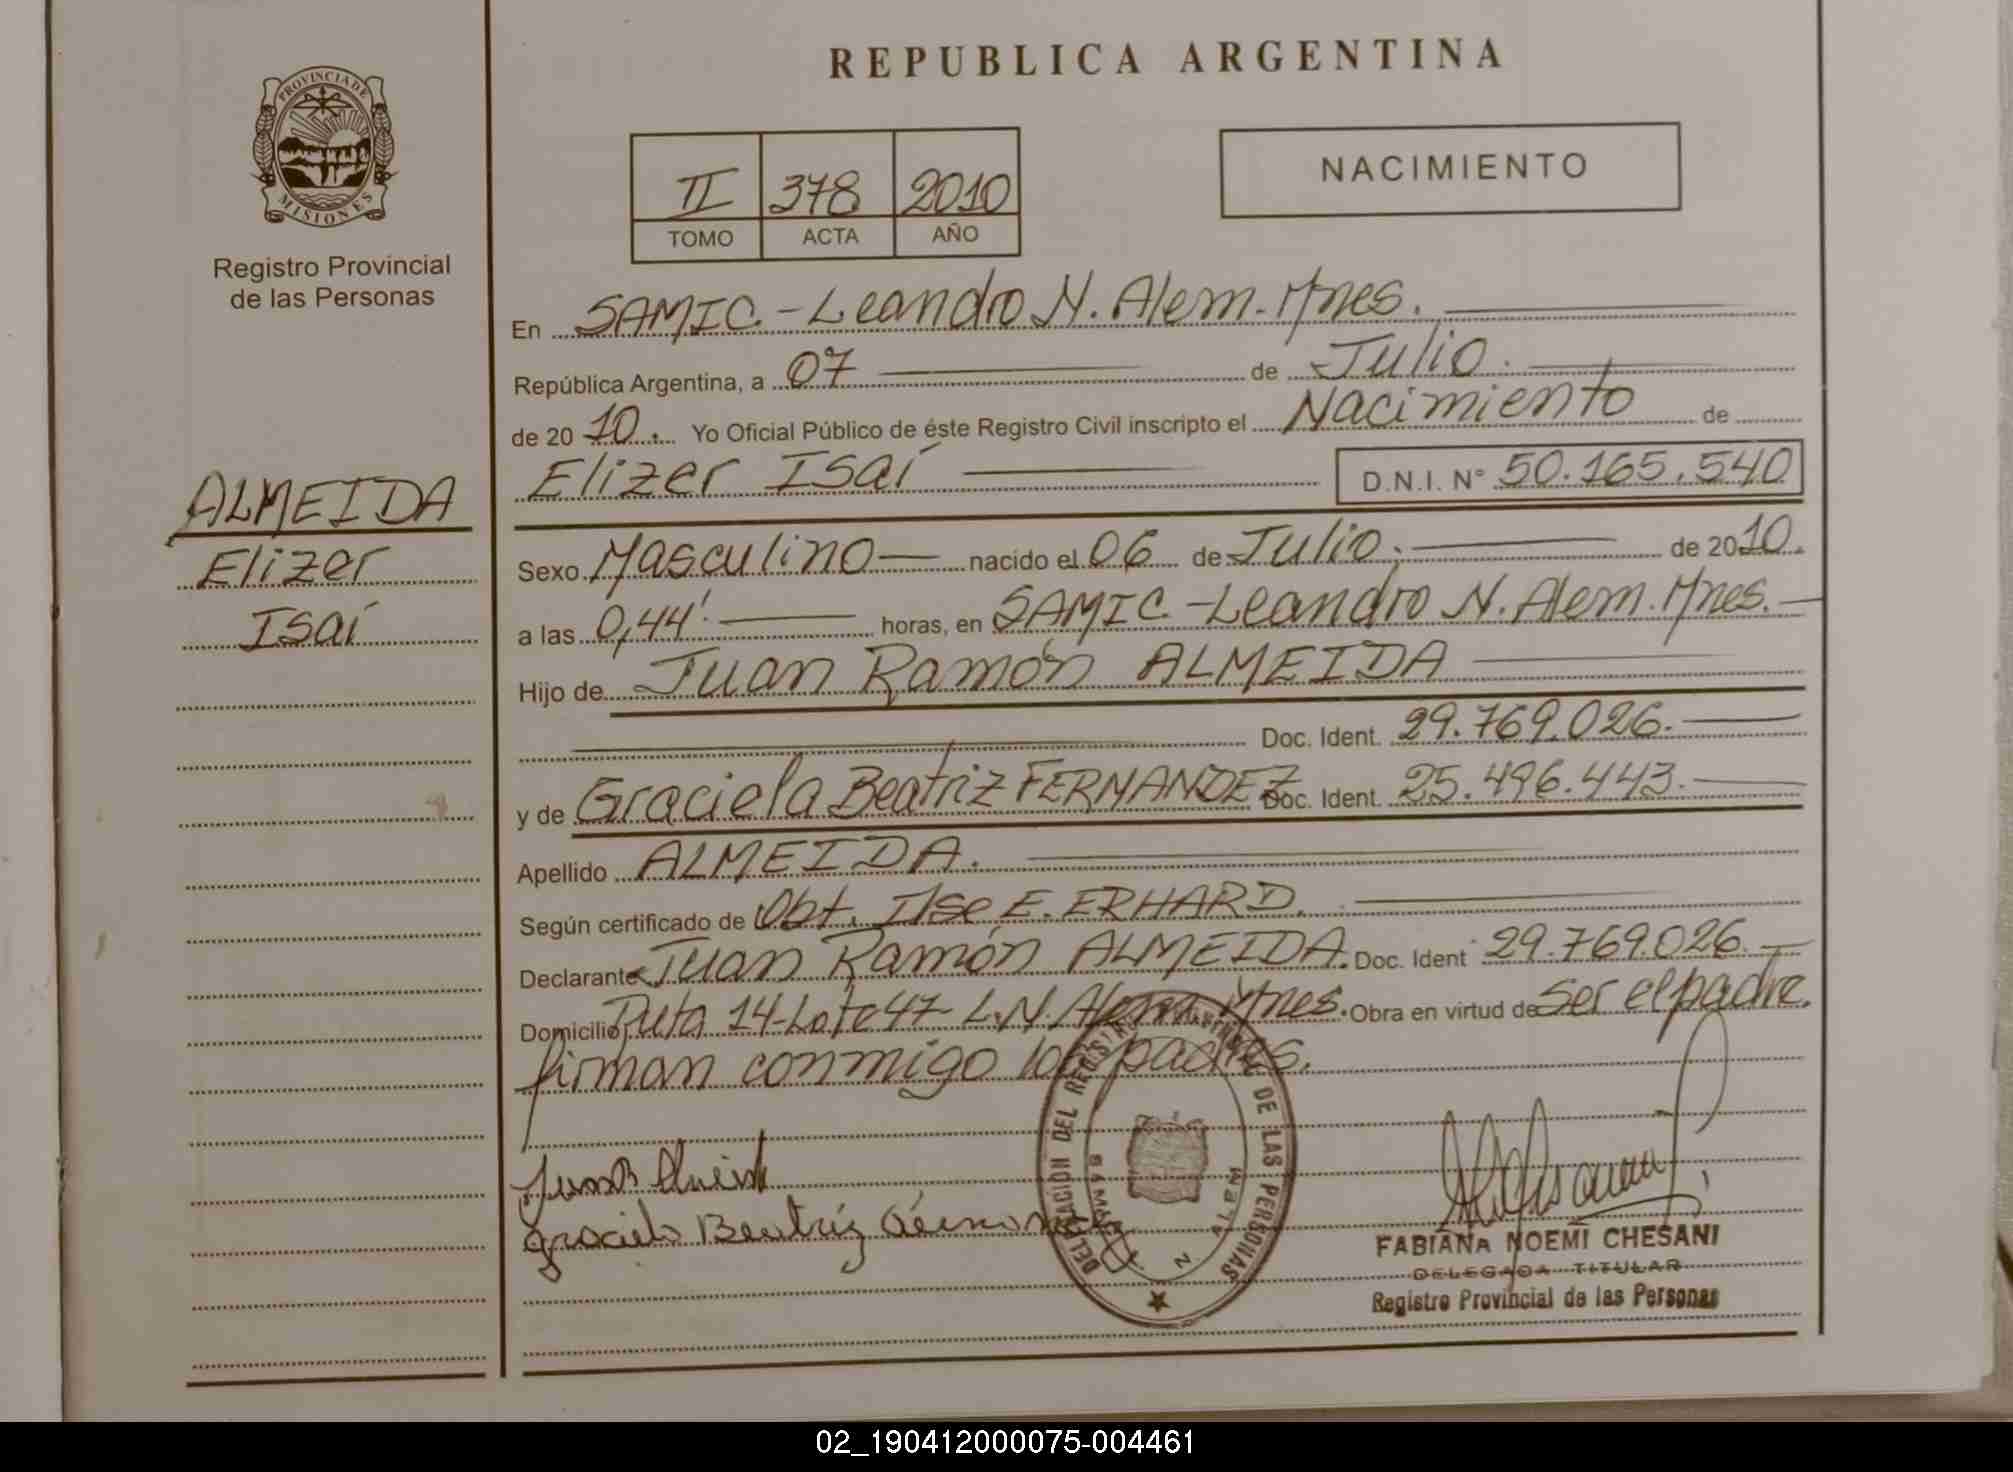 REPUBLICA ARGENTINA
PROVINCIA DE
MISIONES
Registro Provincial
de las Personas
II 378 2010
TOMO ACTA AÑO
NACIMIENTO
En SAMIC.-Leandro N. Alem. Mnes.
República Argentina, a 07 de Julio.
de 2010. Yo Oficial Público de éste Registro Civil inscripto el Nacimiento de
Elizer Isaí D.N.I. N° 50.165.540
ALMEIDA
Elizer
Isaí
Sexo Masculino nacido el 06 de Julio. de 2010.
a las 0,44' horas, en SAMIC -Leandro N. Alem. Mnes.
Hijo de Juan Ramón ALMEIDA
Doc. Ident. 29.769.026.
y de Graciela Beatriz FERNANDEZ Doc. Ident. 25.496.443.
Apellido ALMEIDA.
Según certificado de Obt. Ilse E. ERHARD.
Declarante Juan Ramón ALMEIDA. Doc. Ident 29.769.026.
Domicilio Lote 47- L.N. Alem Mnes. Obra en virtud de ser el padre.
firman conmigo los padres.
Beatriz
DE LAS PERSONAS
FABIANA NOEMÍ CHESANI
DELEGADA TITULAR
Registro Provincial de las Personas
02_190412000075-004461